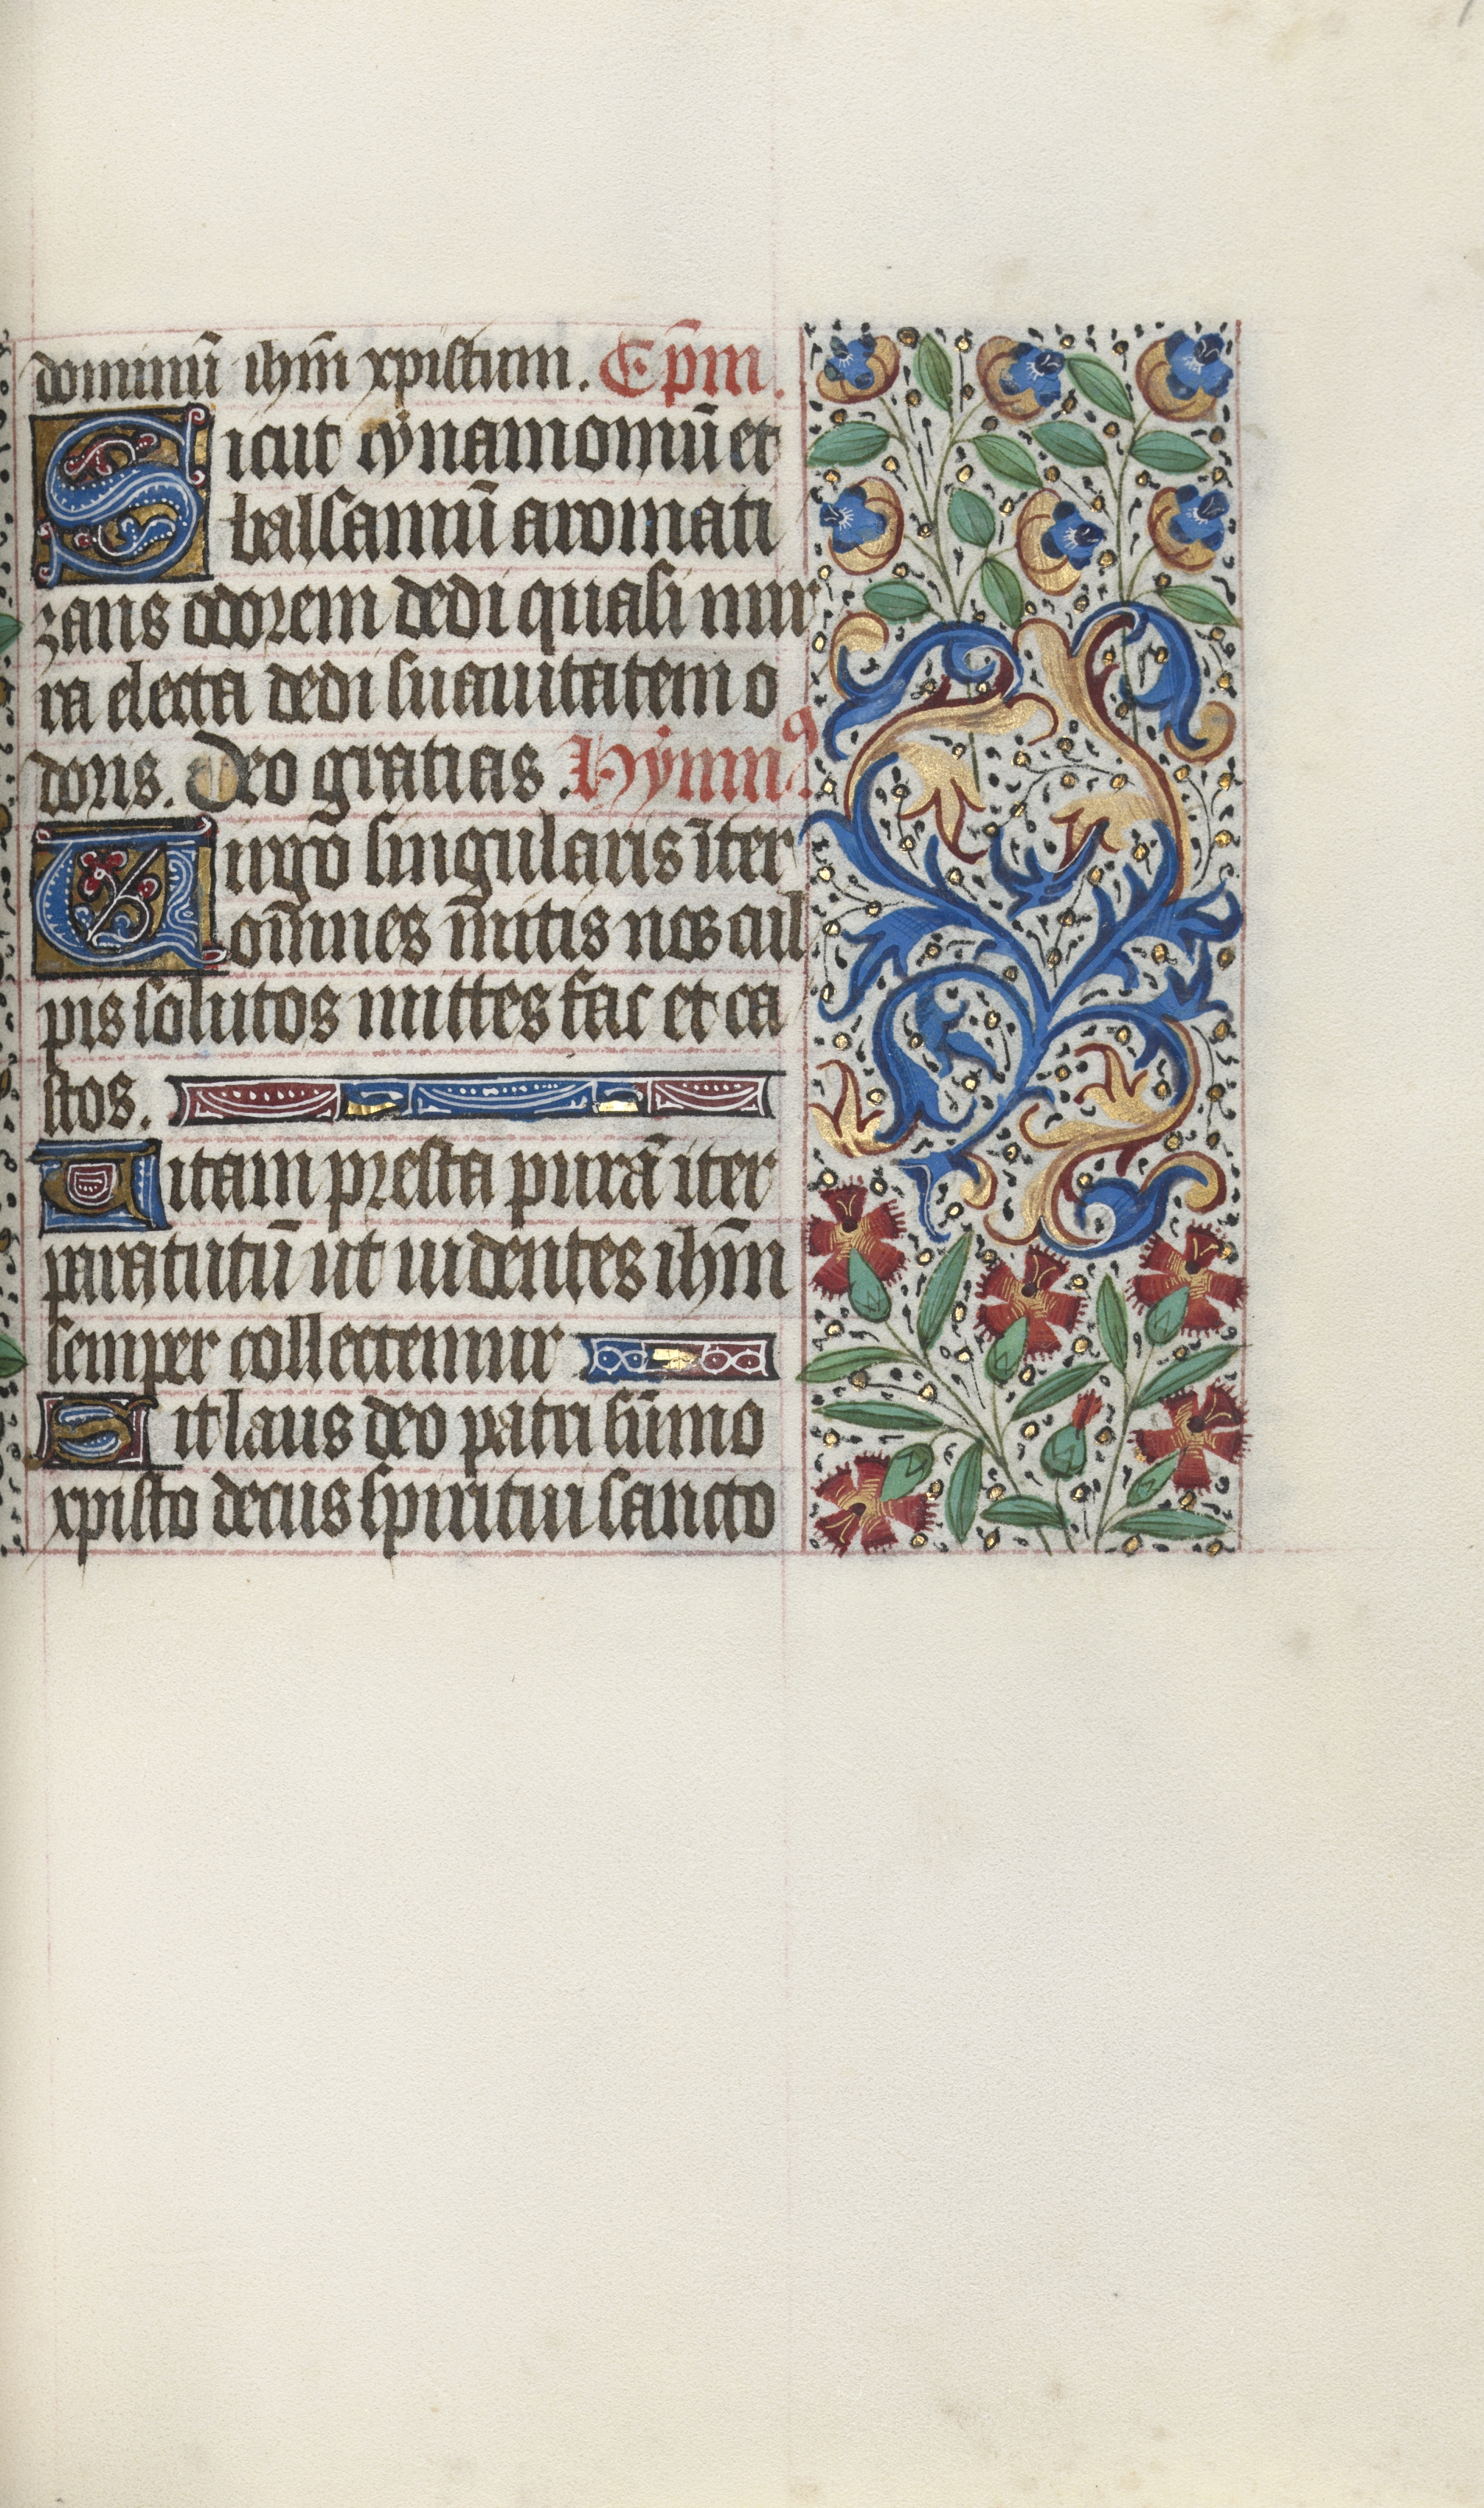 dominū ihm̄ xpistum. Cp̄m.
Sicut cẏnamomū et
balsamū aromati
zans odorem dedi quasi mir
ra electa dedi suauitatem o
doris. Deo gratias. Hẏmnꝰ
Uirgo singularis īter
om̄nes m̄itis nos cul
pis solutos mittes fac et ca
stos.
Uitam presta purā iter
para tutū ut uidentes ihm̄
semper collectemur
Sit laus deo patri sūmo
xpisto decus spiritui sancto